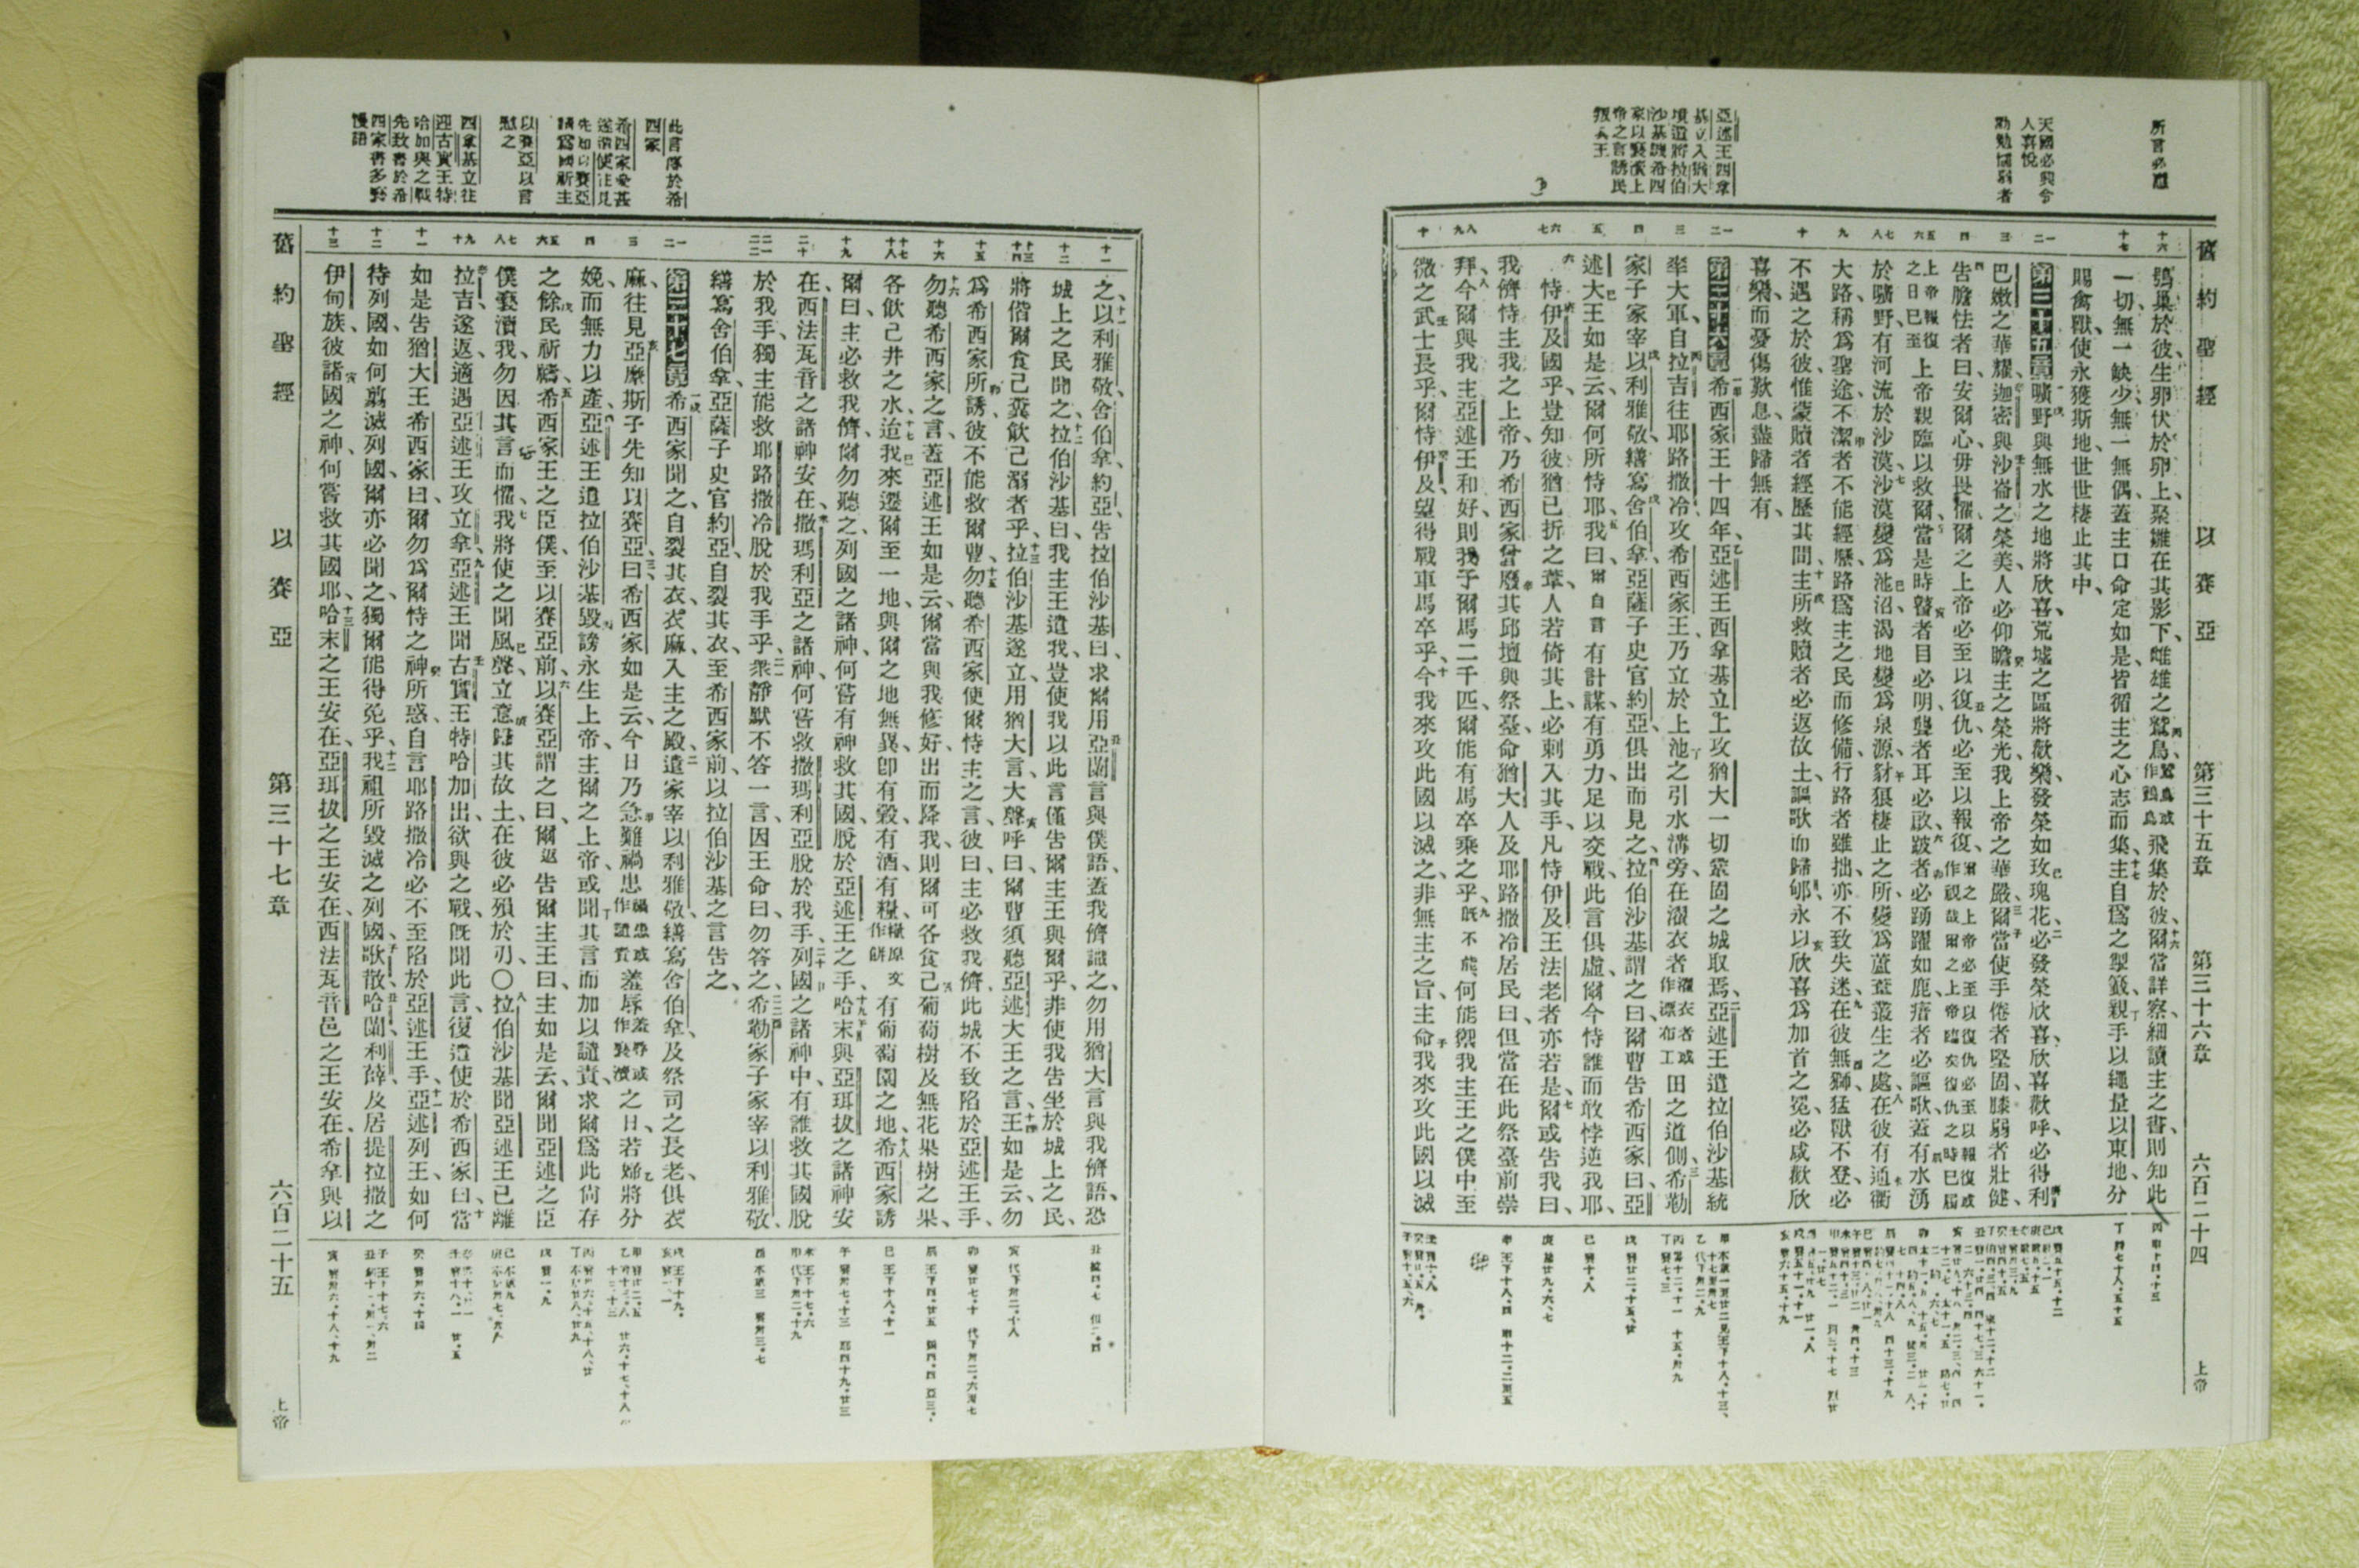 舊約聖經 以賽亞 第三十五章 第三十六章 六百二十四 上帝
天國必興令
人喜悅
亞述王西拿
基立入猶大
境遣將拉伯
沙基城希西
家以褻瀆上
帝之言誘民
叛其王
鴞巢於彼、生卵伏於卵上、聚雛在其影下、雌雄之鷲鳥、鷲鳥或作鷂鳥飛集於彼、爾當詳察細讀主之書、則知此
一切、無一缺少、無一無偶、蓋主口命定如是、皆循主之心志而集、主自爲之掣籤、親手以繩量以東地、分
賜禽獸、使永獲斯地、世世棲止其中、
第三十五章 曠野與無水之地將欣喜、荒墟之區將歡樂、發榮如玫瑰花、必發榮欣喜、欣喜歡呼、必得利
巴嫩之華耀、迦密與沙崙之榮美、人必仰瞻主之榮光、我上帝之華嚴、爾當使手倦者堅固、膝弱者壯健、
告膽怯者曰、安爾心、毋畏懼、爾之上帝必至以復仇、必至以報復、爾之上帝必至以復仇必至以報復或作視哉爾之上帝臨矣復仇之時已屆
上帝報復之日已至上帝親臨以救爾、當是時瞽者目必明、聾者耳必啟、跛者必踴躍如鹿、瘖者必謳歌、蓋有水湧
於曠野、有河流於沙漠、沙漠變爲池沼、渴地變爲泉源、豺狼棲止之所、變爲蘆葦叢生之處、在彼有通衢
大路、稱爲聖途、不潔者不能經歷、路爲主之民而修備、行路者雖拙、亦不致失迷、在彼無獅、猛獸不登、必
不遇之於彼、惟蒙贖者經歷其間、主所救贖者必返故土、謳歌而歸郇、永以欣喜爲加首之冕、必咸歡欣
喜樂、而憂傷歎息、盡歸無有、
第三十六章 希西家王十四年、亞述王西拿基立上攻猶大一切鞏固之城取焉、亞述王遣拉伯沙基統
率大軍、自拉吉往耶路撒冷、攻希西家王、乃立於上池之引水溝旁、在漂衣者漂衣者或作漂布工田之道側、希勒
家子家宰以利雅敬、繕寫舍伯拿、亞薩子史官約亞、俱出而見之、拉伯沙基謂之曰、爾曹告希西家曰、亞
述大王如是云、爾何所恃耶、我曰、爾自言有計謀、有勇力、足以交戰、此言俱虛、爾今恃誰而敢悖逆我耶、
恃伊及國乎、豈知彼猶已折之葦、人若倚其上、必刺入其手、凡恃伊及王法老者亦若是、爾或告我曰、
我儕恃主我之上帝、乃希西家曾廢其邱壇與祭臺、命猶大人及耶路撒冷居民曰、但當在此祭臺前崇
拜、今爾與我主亞述王和好、則我予爾馬二千匹、爾能有馬卒乘之乎、旣不能、何能禦我主王之僕中至
微之武士長乎、爾恃伊及、望得戰車馬卒乎、今我來攻此國以滅之、非無主之旨、主命我來攻此國以滅
之、以利雅敬、舍伯拿、約亞、告拉伯沙基曰、求爾用亞蘭言與僕語、蓋我儕識之、勿用猶大言與我儕語、恐
城上之民聞之、拉伯沙基曰、我主王遣我、豈使我以此言僅告爾主王與爾乎、非使我告坐於城上之民、
將偕爾食己糞飲己溺者乎、拉伯沙基遂立、用猶大言、大聲呼曰、爾曹須聽亞述大王之言、王如是云、勿
爲希西家所誘、彼不能救爾曹、勿聽希西家使爾恃主之言、彼曰、主必救我儕、此城不致陷於亞述王手、
勿聽希西家之言、蓋亞述王如是云、爾當與我修好、出而降我、則爾可各食己葡萄樹及無花果樹之果、
各飲己井之水、迨我來遷爾至一地、與爾之地無異、卽有穀、有酒、有糧、糧原文作餅有葡萄園之地、希西家誘
爾曰、主必救我儕、爾勿聽之、列國之諸神、何嘗有神救其國、脫於亞述王之手、哈末與亞珥拔之諸神安
在、西法瓦音之諸神安在、撒瑪利亞之諸神、何嘗救撒瑪利亞脫於我手、列國之諸神中、有誰救其國脫
於我手、獨主能救耶路撒冷脫於我手乎、衆靜默不答一言、因王命曰、勿答之、希勒家子家宰以利雅敬、
繕寫舍伯拿、亞薩子史官約亞、自裂其衣、至希西家前、以拉伯沙基之言告之、
第三十七章 希西家聞之、自裂其衣、衣麻、入主之殿、遣家宰以利雅敬、繕寫舍伯拿、及祭司之長老、俱衣
麻、往見亞麽斯子先知以賽亞、曰、希西家如是云、今日乃急難禍患禍患或作譴責羞辱羞辱或作褻瀆之日、若婦將分
娩、而無力以產、亞述王遣拉伯沙基毀謗永生上帝、主爾之上帝、或聞其言而加以譴責、求爾爲此尙存
之餘民祈禱、希西家王之臣僕、至以賽亞前、以賽亞謂之曰、爾返告爾主王曰、主如是云、爾聞亞述之臣
僕褻瀆我、勿因其言而懼、我將使之聞風聲、立意歸其故土、在彼必殞於刃、○拉伯沙基聞亞述王已離
拉吉、遂返、適遇亞述王攻立拿、亞述王聞古實王特哈加出、欲與之戰、旣聞此言、復遣使於希西家曰、當
如是告猶大王希西家曰、爾勿爲爾恃之神所惑、自言耶路撒冷必不至陷於亞述王手、亞述列王、如何
待列國、如何翦滅列國、爾亦必聞之、獨爾能得免乎、我祖所毀滅之列國、歌散、哈蘭、利薛、及居提拉撒之
伊甸族、彼諸國之神、何嘗救其國耶、哈末之王安在、亞珥拔之王安在、西法瓦音邑之王安在、希拿與以
此言傳於希
西家
希西家憂甚
遂遣使往見
先知以賽亞
請爲國祈主
以賽亞以言
慰之
西拿基立往
迎古實王特
哈加與之戰
先致書於希
西家書多褻
慢語
舊約聖經 以賽亞 第三十七章 六百二十五 上帝